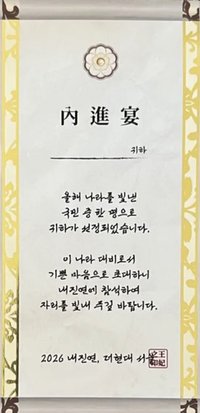 內進宴
귀하
올해 나라를 빛낸
국민 중 한 명으로
귀하가 선정되었습니다.
이 나라 대비로서
기쁜 마음으로 초대하니
내진연에 참석하여
자리를 빛내 주길 바랍니다.
2026 내진연, 더현대 서울